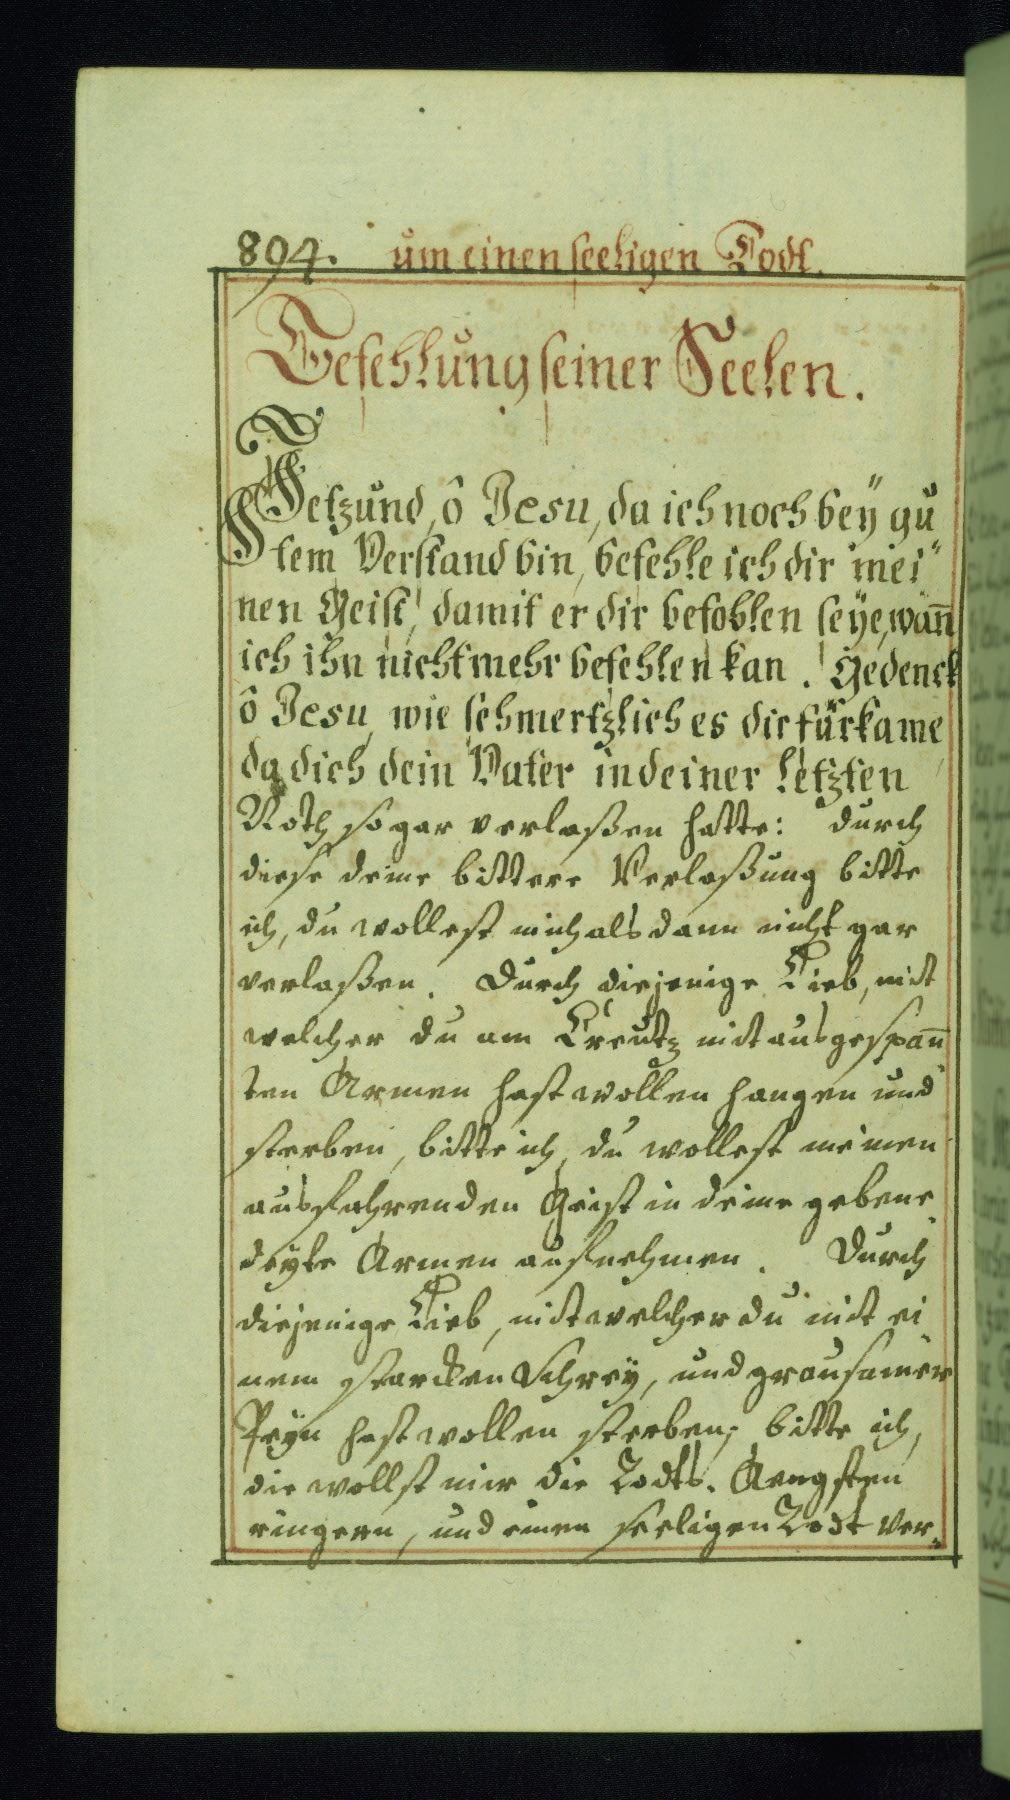 894. um einen seeligen Todt.
Befehlung seiner Seelen.
Jetzund, ô Jesu, da ich noch bey gu
tem Verstand bin, befehle ich dir mei
nen Geist, damit er dir befohlen seye, wañ
ich ihn nicht mehr befehlen kan. Gedenck
ô Jesu, wie schmertzlich es dir fürkame,
da dich dein Vater in deiner letzten
Noth so gar verlaßen hatte: durch
diese deine bittere Verlaßung bitte
ich, du wollest mich alsdann nicht gar
verlaßen. Durch diejenige Lieb, mit
welcher du am Creutz mit ausgespañ
ten Armen hast wollen hangen und
sterben, bitte ich, du wollest meinen
ausfahrenden Geist in deine gebene
deyte Armen aufnehmen. Durch
diejenige Lieb, mit welcher du mit ei
nem starcken Schrey, und grausamer
Peyn hast wollen sterben; bitte ich,
du wollst mir die Todts-Aengsten
ringern, und einen seeligen Todt ver-